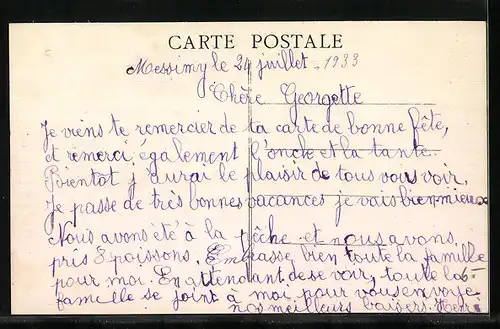 CARTE POSTALE
Messimy le 24 juillet 1933
Chère Georgette
Je viens te remercier de ta carte de bonne fête,
et remerci également l'oncle et la tante.
Bientot j'aurai le plaisir de tous vous voir.
Je passe de très bonnes vacances je vais bien mieux
Nous avons été à la pêche et nous avons
pris 8 poissons. Embrasse bien toute la famille
pour moi. En attendant de se voir, toute la
famille se joint à moi pour vous envoyé
nos meilleurs baisers. Henri